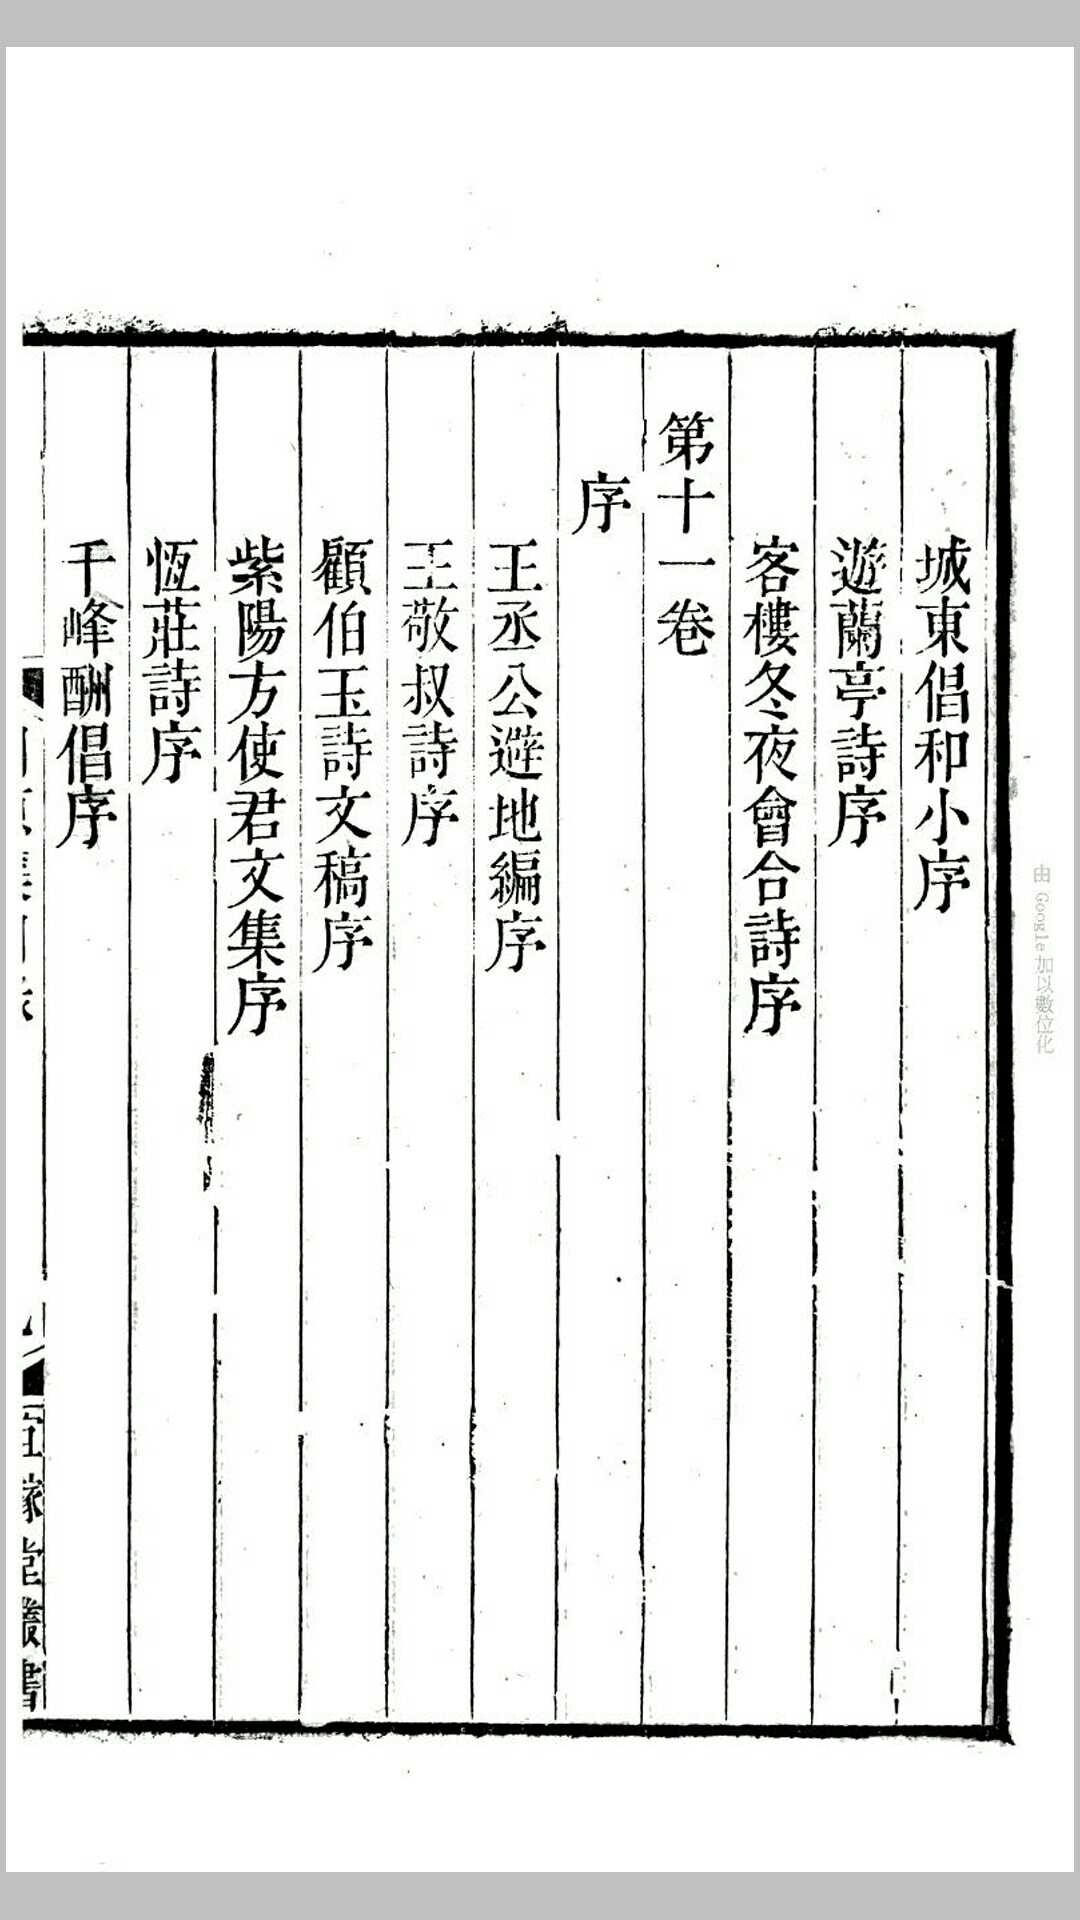 城東倡和小序
遊蘭亭詩序
客樓冬夜會合詩序
第十一卷
序
王丞公避地編序
王敬叔詩序
顧伯玉詩文稿序
紫陽方使君文集序
恆莊詩序
千峰酬倡序
堂叢書
由 Google 加以數位化